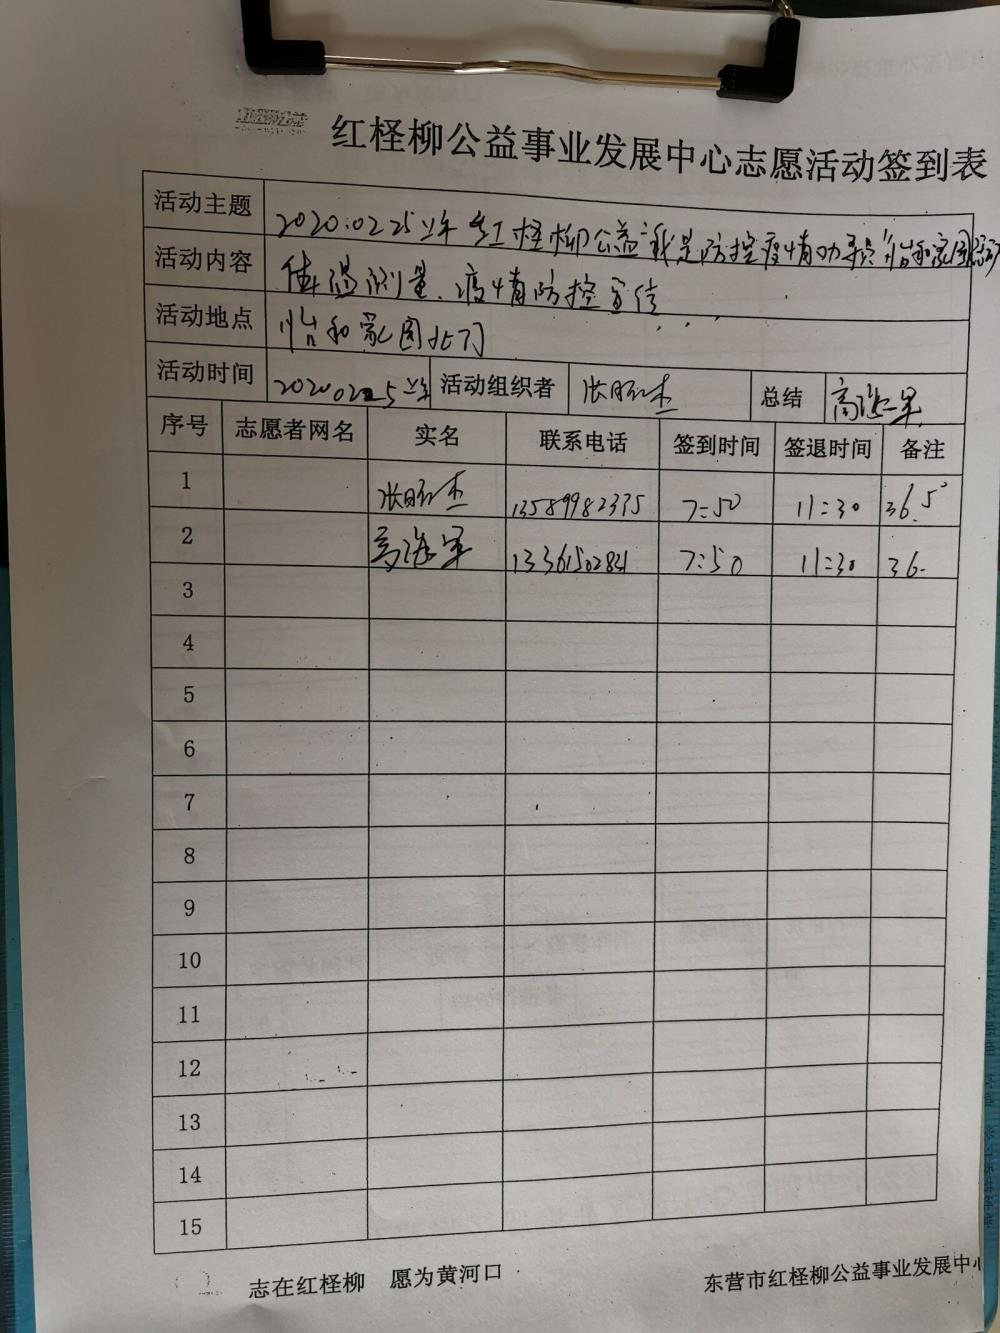 红柽柳公益事业发展中心志愿活动签到表
活动主题 2020.02.25上午红柽柳公益“我是防控疫情劝导员”怡和家园
活动内容 体温测量、疫情防控宣传
活动地点 怡和家园北门
活动时间 2020 02 25上午 活动组织者 张昭杰 总结 高海军
序号 志愿者网名 实名 联系电话 签到时间 签退时间 备注
1 张昭杰 13589982375 7:50 11:30 36.5°
2 高海军 7:50 11:30 36.
3
4
5
6
7
8
9
10
11
12
13
14
15
志在红柽柳 愿为黄河口
东营市红柽柳公益事业发展中心